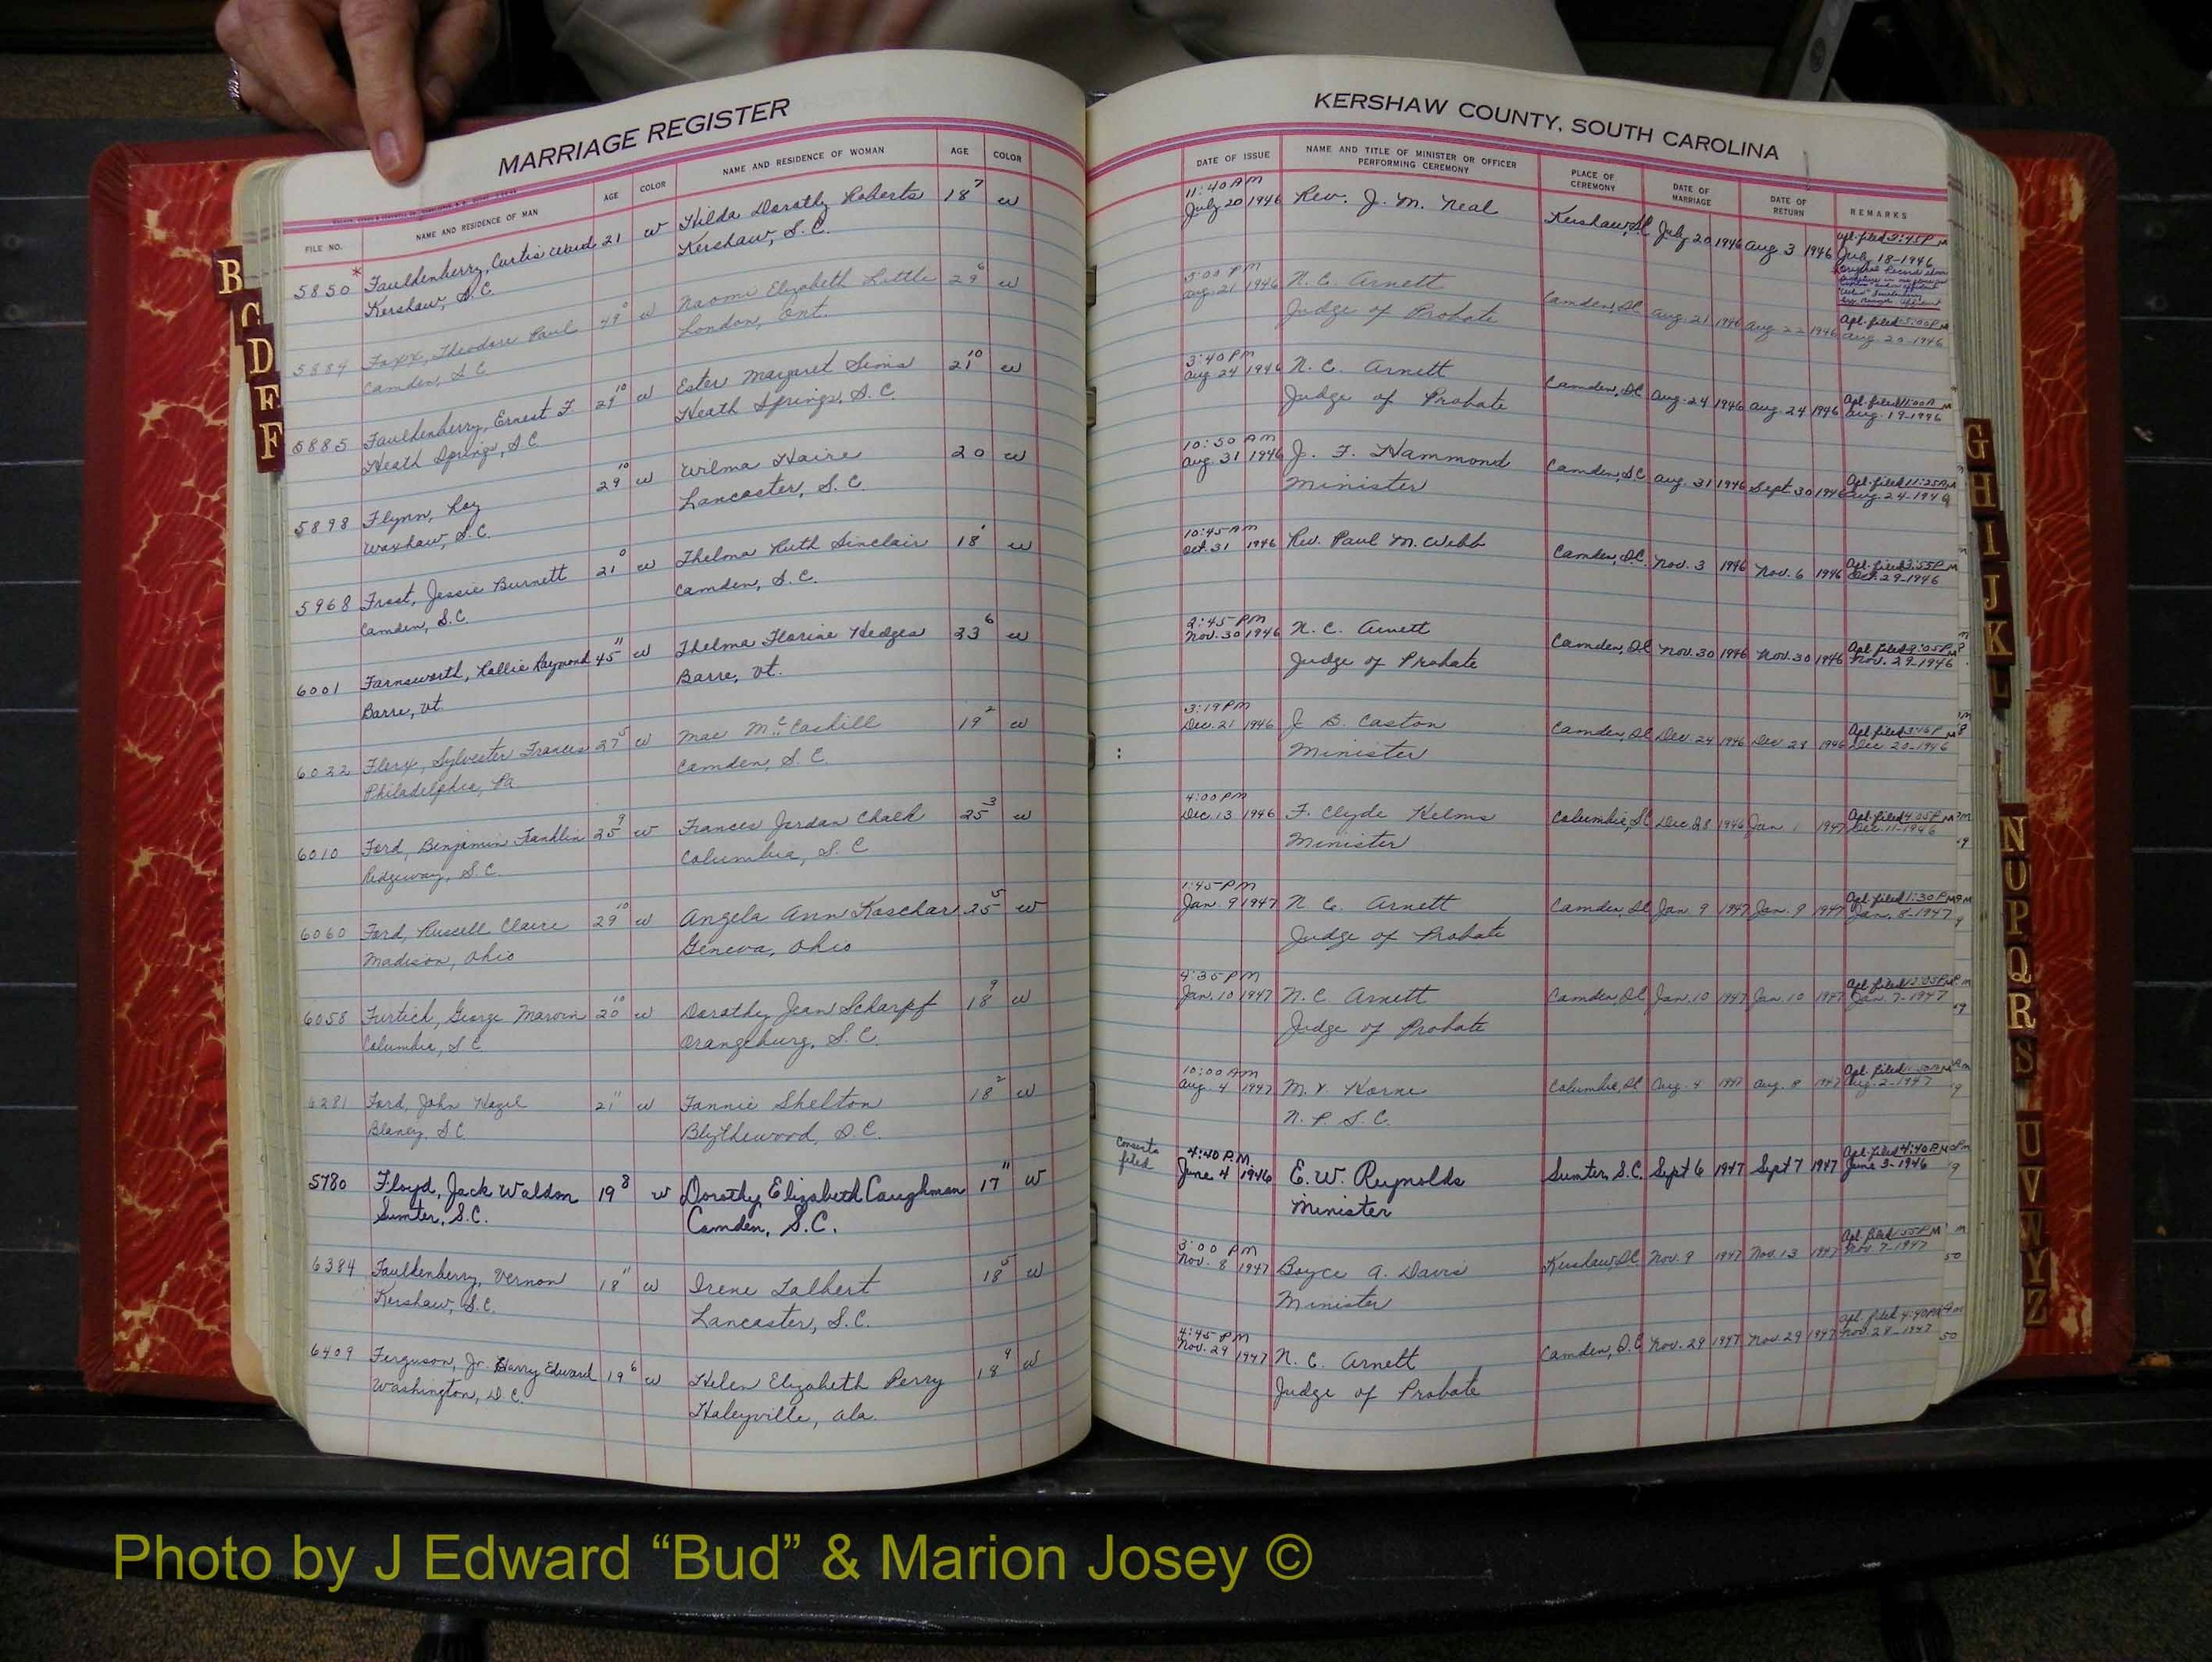 MARRIAGE REGISTER
FILE NO. NAME AND RESIDENCE OF MAN AGE COLOR NAME AND RESIDENCE OF WOMAN AGE COLOR
5850 * Fauldenberry, Curtis 21 w Hilda Dorothy Roberts 18 7 w
Kershaw, S.C. Kershaw, S.C.
5884 Foxx, Theodore Paul 49 w Naomi Elizabeth Little 29 6 w
Camden, S.C. London, Ont.
5885 Fauldenberry, Ernest F. 29 10 w Ester Margaret Sims 21 10 w
Heath Springs, S.C. Heath Springs, S.C.
5898 Flynn, Roy 29 10 w Wilma Haire 20 w
Waxhaw, S.C. Lancaster, S.C.
5968 Frost, Jessie Burnett 21 0 w Thelma Ruth Sinclair 18 w
Camden, S.C. Camden, S.C.
6001 Farnsworth, Rollie Raymond 45 11 w Thelma Florine Hedges 23 6 w
Barre, Vt. Barre, Vt.
6022 Sylvester Francis 27 5 w Mae McCaskill 19 2 w
Philadelphia, Pa. Camden, S.C.
6010 Ford, Benjamin Franklin 25 9 w Frances Jordan Chalk 25 3 w
Ridgeway, S.C. Columbia, S.C.
6060 Ford, Russell Claire 29 10 w Angela Ann Kaschar 25 5 w
Madison, Ohio Geneva, Ohio
6058 Furtick, George Marvin 20 10 w Dorothy Jean Scharpf 18 9 w
Columbia, S.C. Orangeburg, S.C.
6281 Ford, John Hazel 21 11 w Fannie Shelton 18 2 w
Blaney, S.C. Blythewood, S.C.
5780 Floyd, Jack Waldon 19 8 w Dorothy Elizabeth Caughman 17 11 w
Sumter, S.C. Camden, S.C.
6384 Fauldenberry, Vernon 18 11 w Irene Talbert 18 5 w
Kershaw, S.C. Lancaster, S.C.
6409 Ferguson, Jr. Harry Edward 19 6 w Helen Elizabeth Perry 18 9 w
Washington, D.C. Haleyville, Ala.
KERSHAW COUNTY, SOUTH CAROLINA
DATE OF ISSUE NAME AND TITLE OF MINISTER OR OFFICER PERFORMING CEREMONY PLACE OF CEREMONY DATE OF MARRIAGE DATE OF RETURN REMARKS
11:40 AM
July 20 1946 Rev. J. M. Neal Kershaw, SC July 20 1946 Aug 3 1946 Apl. filed 3:45 PM
July 18-1946
5:00 PM
Aug. 21 1946 N. C. Arnett Camden, SC Aug 21 1946 Aug 22 1946 Apl. filed 5:00 PM
Judge of Probate Aug 20-1946
3:40 PM
Aug 24 1946 N. C. Arnett Camden, SC Aug. 24 1946 Aug 24 1946 Apl. filed 11:00 A M
Judge of Probate Aug. 19-1946
10:50 AM
Aug 31 1946 J. F. Hammond Camden, SC Aug. 31 1946 Sept. 30 1946 Apl. filed 11:25 AM
Minister Aug. 24-1946
10:45 AM
Oct. 31 1946 Rev. Paul M. Webb Camden, SC Nov. 3 1946 Nov. 6 1946 Apl. filed 3:55 PM
Oct. 29-1946
2:45 PM
Nov. 30 1946 N. C. Arnett Camden, SC Nov. 30 1946 Nov. 30 1946 Apl. filed 9:05 PM
Judge of Probate Nov. 29-1946
3:19 PM
Dec. 21 1946 J B. Caston Camden, SC Dec. 24 1946 Dec 28 1946 Apl. filed PM
Minister Dec. 20-1946
4:00 PM
Dec. 13 1946 F. Clyde Helms Columbia, SC Dec 28 1946 Jan. 1 1947 Apl. filed 4:05 PM
Minister Dec. 11-1946
1:45 PM
Jan. 9 1947 N. C. Arnett Camden, SC Jan. 9 1947 Jan. 9 1947 Apl. filed 1:30 PM
Judge of Probate Jan. 8-1947
4:35 PM
Jan. 10 1947 N. C. Arnett Camden, SC Jan. 10 1947 Jan. 10 1947 Apl. filed 12:05 PM
Judge of Probate Jan. 7-1947
10:00 AM
Aug. 4 1947 M. V. Horne Columbia, SC Aug. 4 1947 Aug. 8 1947 Apl. filed
N. P. S. C. Aug. 2-1947
Consents filed
4:40 P.M.
June 4 1946 E. W. Reynolds Sumter, S.C. Sept 6 1947 Sept 7 1947 Apl. filed 4:40 P.M
Minister June 3-1946
3:00 PM
Nov. 8 1947 Boyce A. Davis Kershaw, SC Nov. 9 1947 Nov. 13 1947 Apl. filed 1:55 PM
Minister Nov. 7-1947
4:45 PM
Nov. 29 1947 N. C. Arnett Camden, S.C Nov. 29 1947 Nov. 29 1947 Apl. filed 4:40 PM
Judge of Probate Nov. 28-1947
B
C
D
E
F
G
H
I
J
K
L
N
O
P
Q
R
S
U
V
W
Y
Z
Photo by J Edward “Bud” & Marion Josey ©